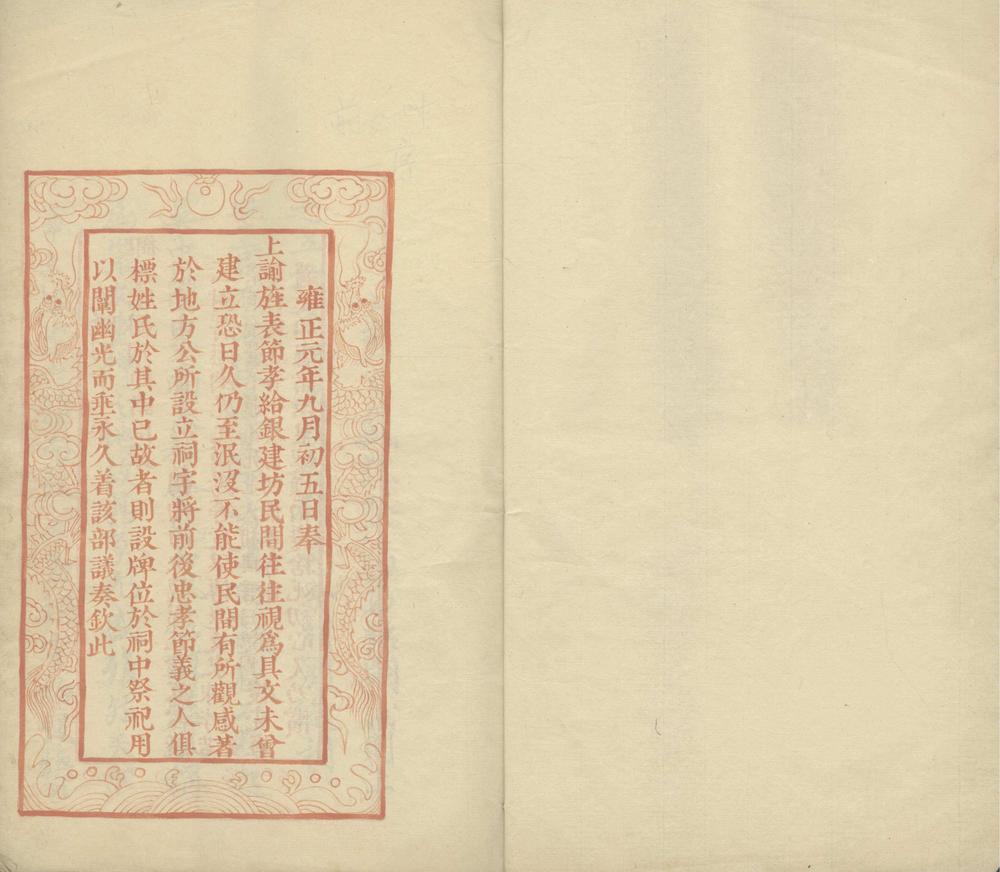 雍正元年九月初五日奉
上諭旌表節孝給銀建坊民間往往視爲具文未曾
建立恐日久仍至泯沒不能使民間有所觀感著
於地方公所設立祠宇將前後忠孝節義之人俱
標姓氏於其中已故者則設牌位於祠中祭祀用
以闡幽光而垂永久着該部議奏欽此